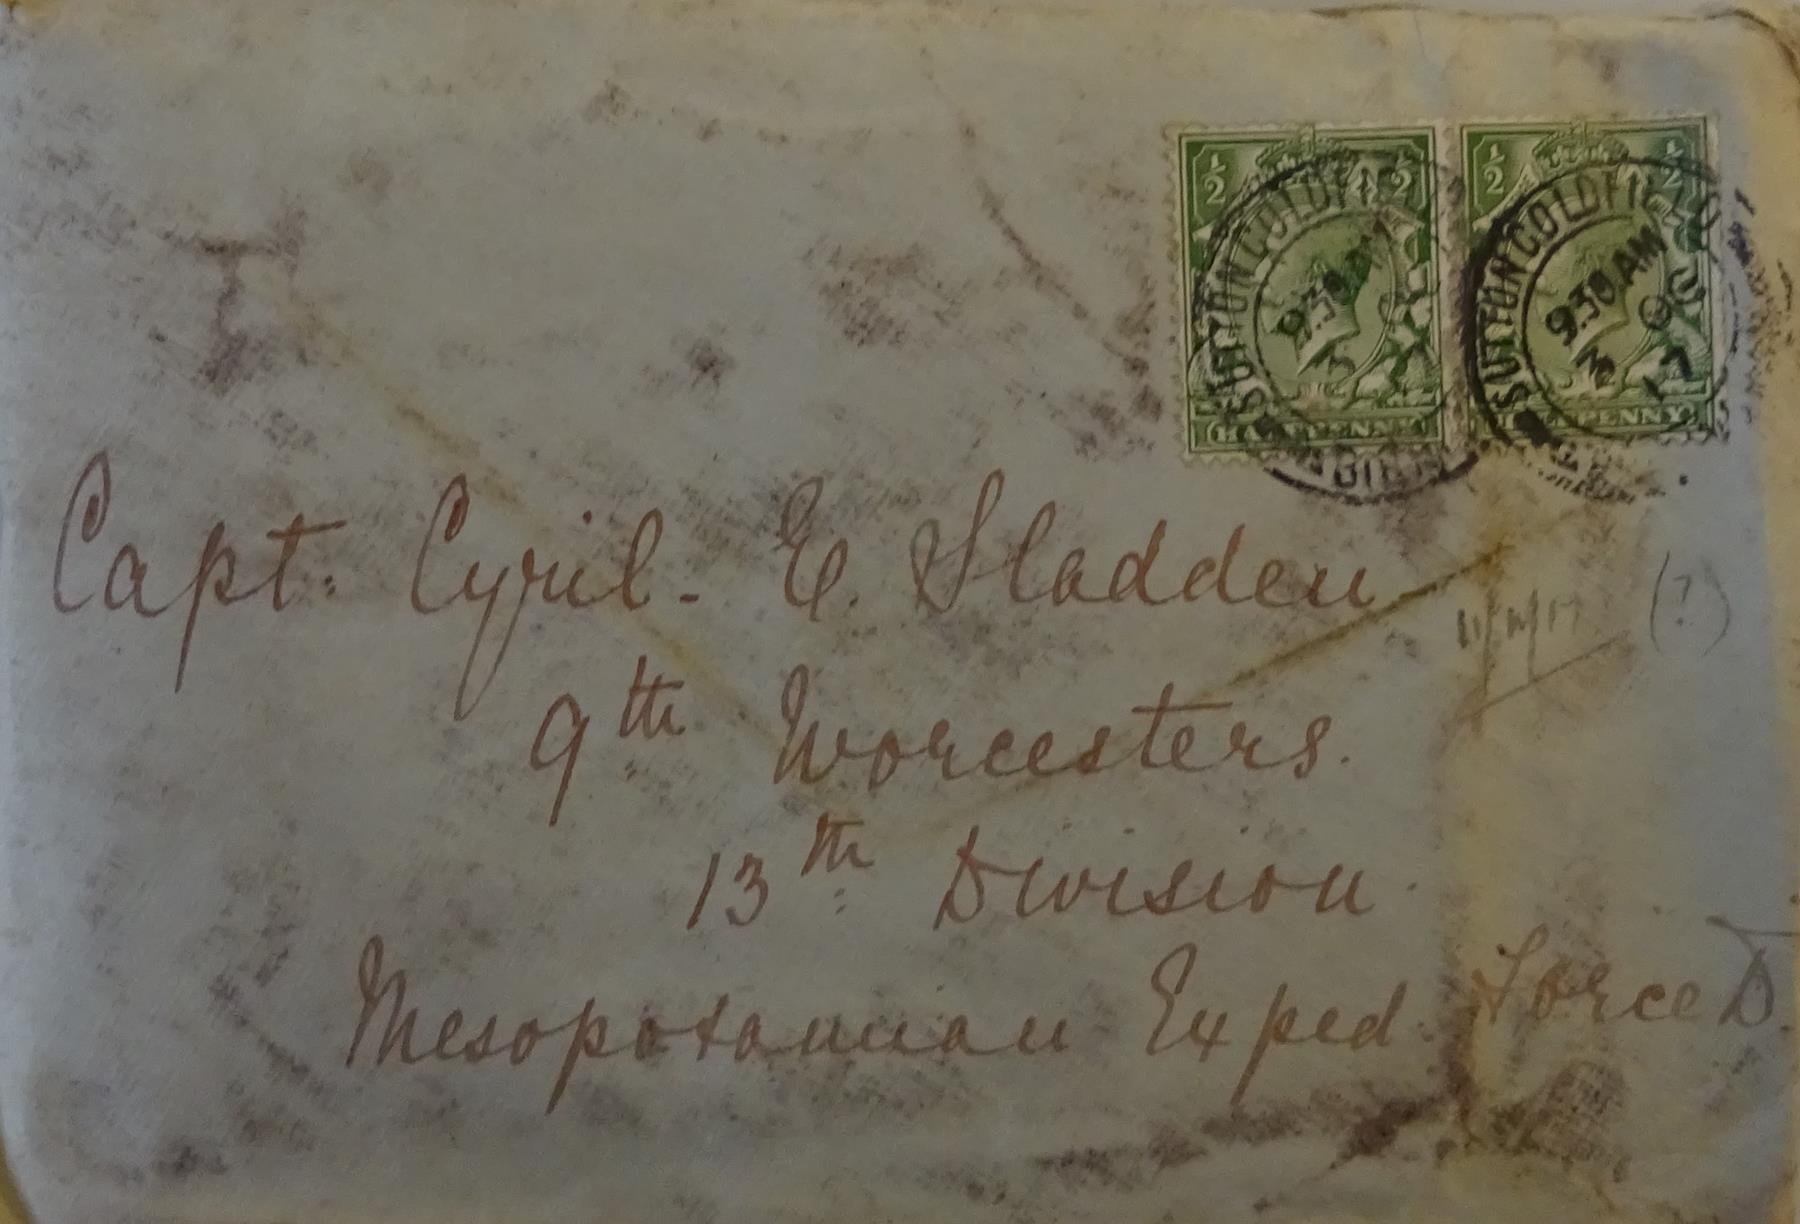 ½ ½ ½ ½
SUTTON COLDFIELD
9.30 AM
3
SUTTON COLDFIELD
9.30 AM
3 OC
17
HALFPENNY
HALFPENNY
Capt. Cyril. E. Sladden
11/11/17 (?)
9th Worcesters.
13th Division.
Mesopotamian Exped. Force D.